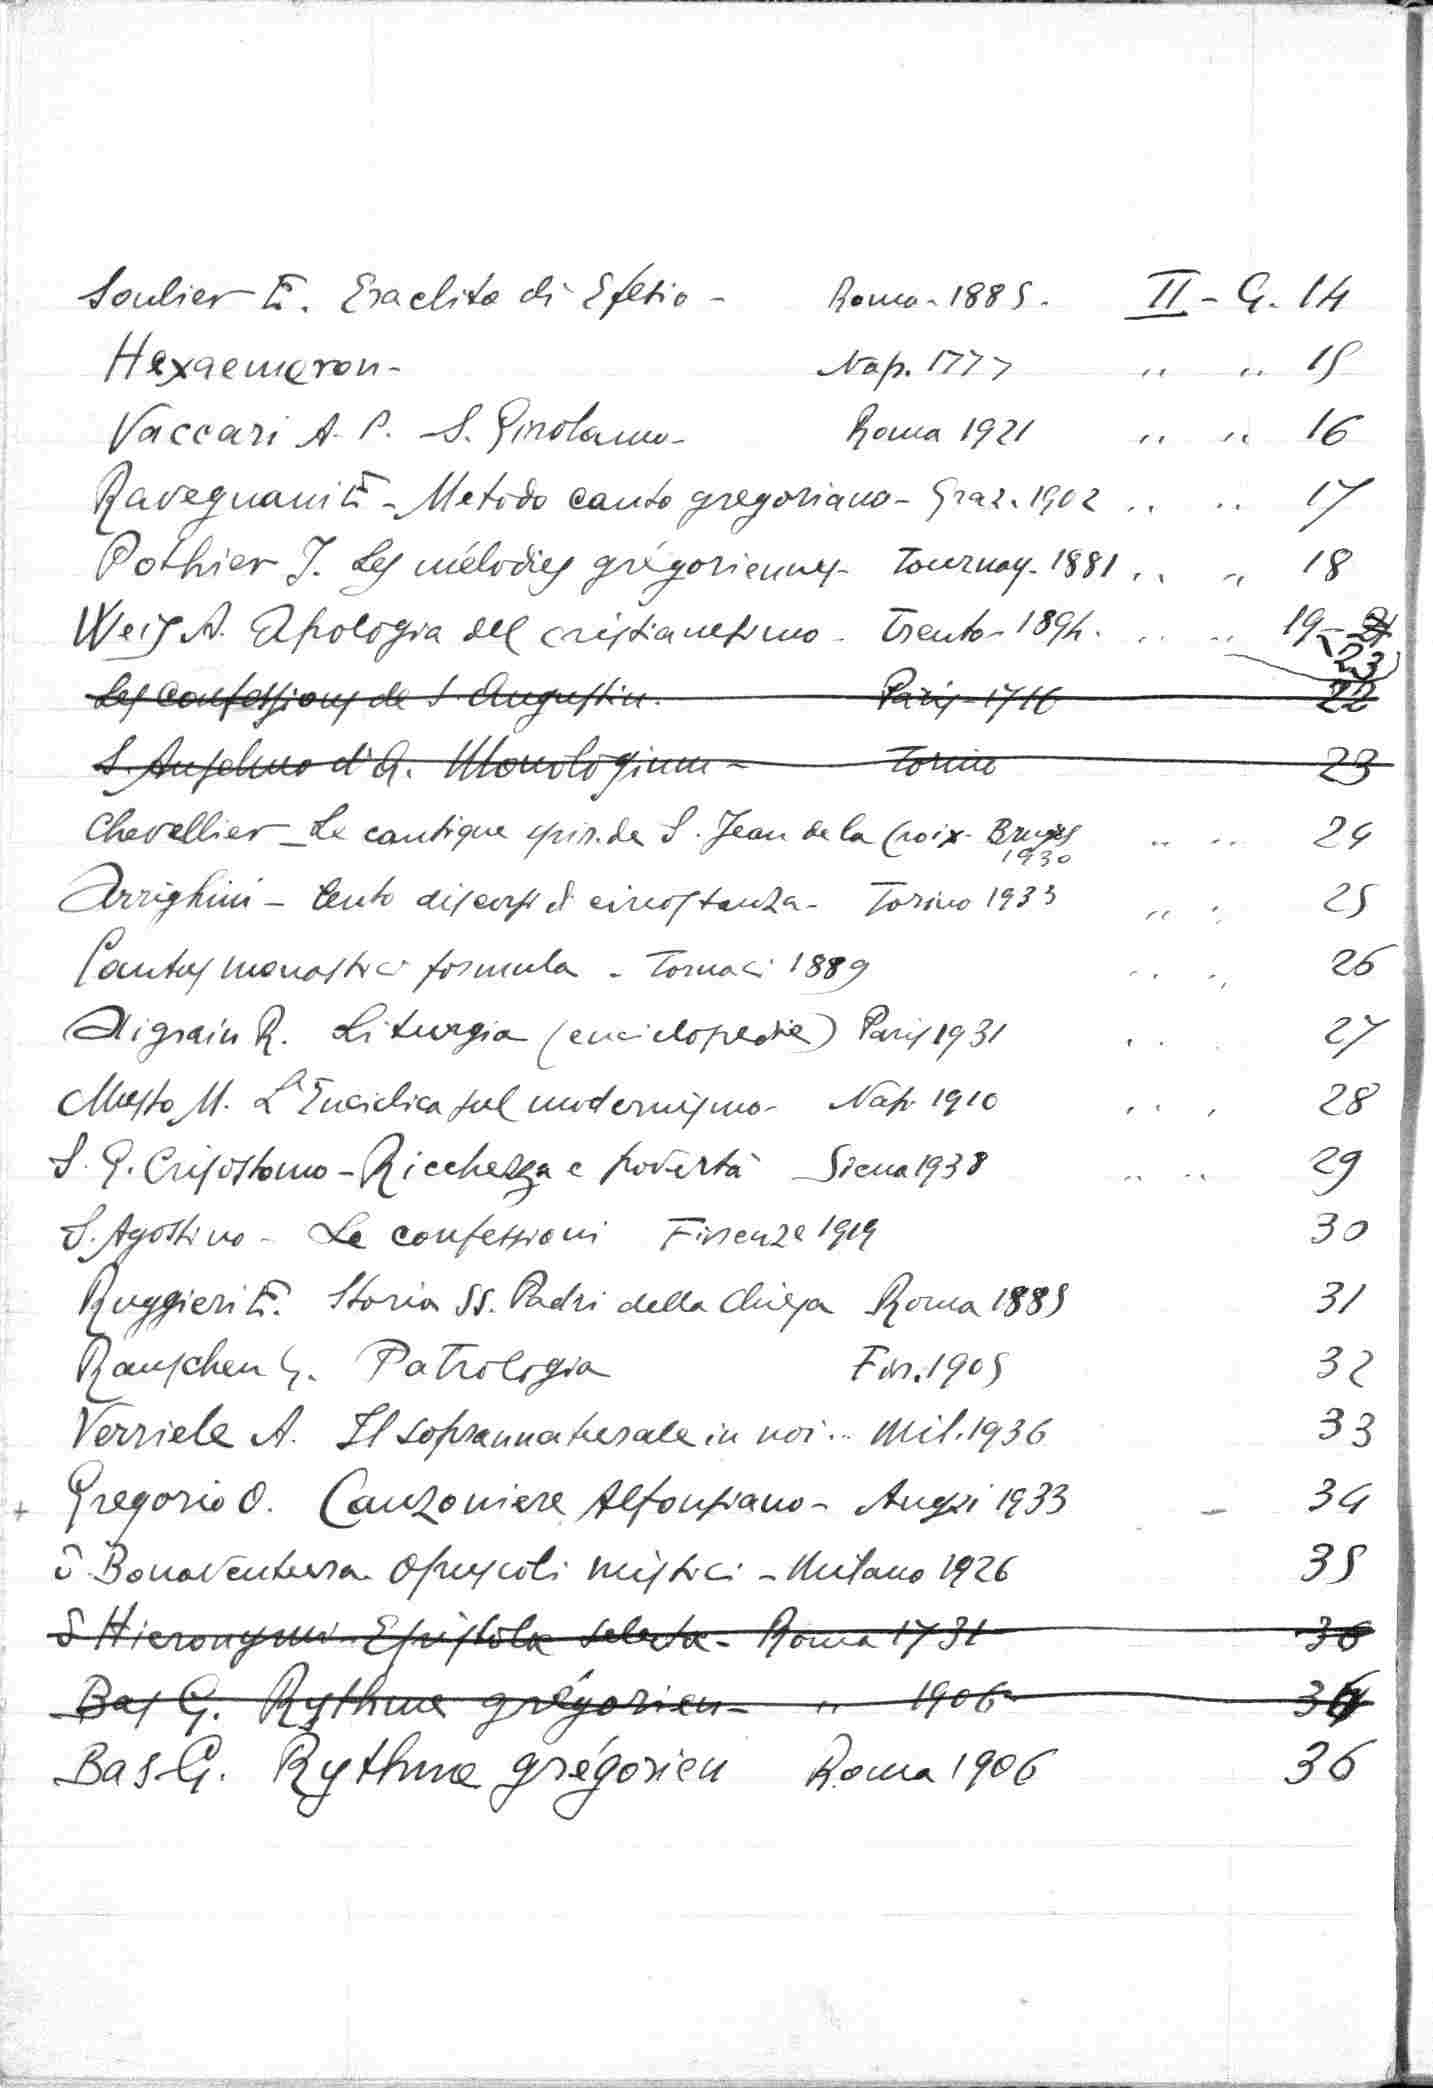 Soulier E. Eraclito di Efesio - Roma - 1885. II - G. 14
Hexaemeron - Nap. 1777 " " 15
Vaccari A. P. - S. Girolamo - Roma 1921 " " 16
Ravegnani E - Metodo canto gregoriano - Graz. 1902 " " 17
Pothier J. Les mélodies grégoriennes - Tournay - 1881 " " 18
Weis A. Apologia del cristianesimo - Trento - 1894. " " 19 - 21
23
Les confessions de S. Augustin. Paris - 1716 22
S. Anselmo d'A. Monologium - Torino 23
Chevallier - Le cantique spir. de S. Jean de la Croix - Bruges " " 24
1930
Arrighini - Cento discorsi di circostanza - Torino 1933 " " 25
Cantus monastici formula - Tornaci 1889 " " 26
Aigrain R. Liturgia (enciclopedie) Paris 1931 " " 27
Musto M. L'Enciclica sul modernismo - Nap. 1910 " " 28
S. G. Crisostomo - Ricchezza e povertà Siena 1938 " " 29
S. Agostino - Le confessioni Firenze 1919 30
Ruggieri E. Storia SS. Padri della Chiesa Roma 1885 31
Rauschen G. Patrologia Fir. 1905 32
Verriele A. Il soprannaturale in noi .. Mil. 1936 33
+ Gregorio O. Canzoniere Alfonsiano - Angri 1933 - 34
S. Bonaventura - Opuscoli mistici - Milano 1926 35
S Hieronymi - Epistolæ selectæ - Roma 1731 36
Bas G. Rythme grégorien - " 1906 - 36
Bas G. Rythme grégorien Roma 1906 36